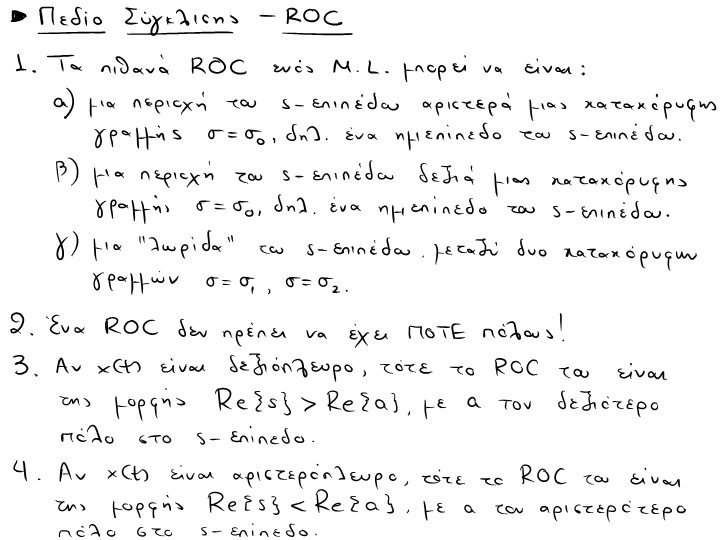 ▶ Πεδίο Σύγκλισης – ROC
1. Τα πιθανά ROC ενός Μ.L. μπορεί να είναι:
α) μια περιοχή του s-επιπέδου αριστερά μιας κατακόρυφης
γραμμής σ=σ₀, δηλ. ένα ημιεπίπεδο του s-επιπέδου.
β) μια περιοχή του s-επιπέδου δεξιά μιας κατακόρυφης
γραμμής σ=σ₀, δηλ. ένα ημιεπίπεδο του s-επιπέδου.
γ) μια "λωρίδα" του s-επιπέδου, μεταξύ δυο κατακόρυφων
γραμμών σ=σ₁, σ=σ₂.
2. Ένα ROC δεν πρέπει να έχει ΠΟΤΕ πόλους!
3. Αν x(t) είναι δεξιόπλευρο, τότε το ROC του είναι
της μορφής Re{s} > Re{a}, με a τον δεξιότερο
πόλο στο s-επίπεδο.
4. Αν x(t) είναι αριστερόπλευρο, τότε το ROC του είναι
της μορφής Re{s} < Re{a}, με a τον αριστερότερο
πόλο στο s-επίπεδο.